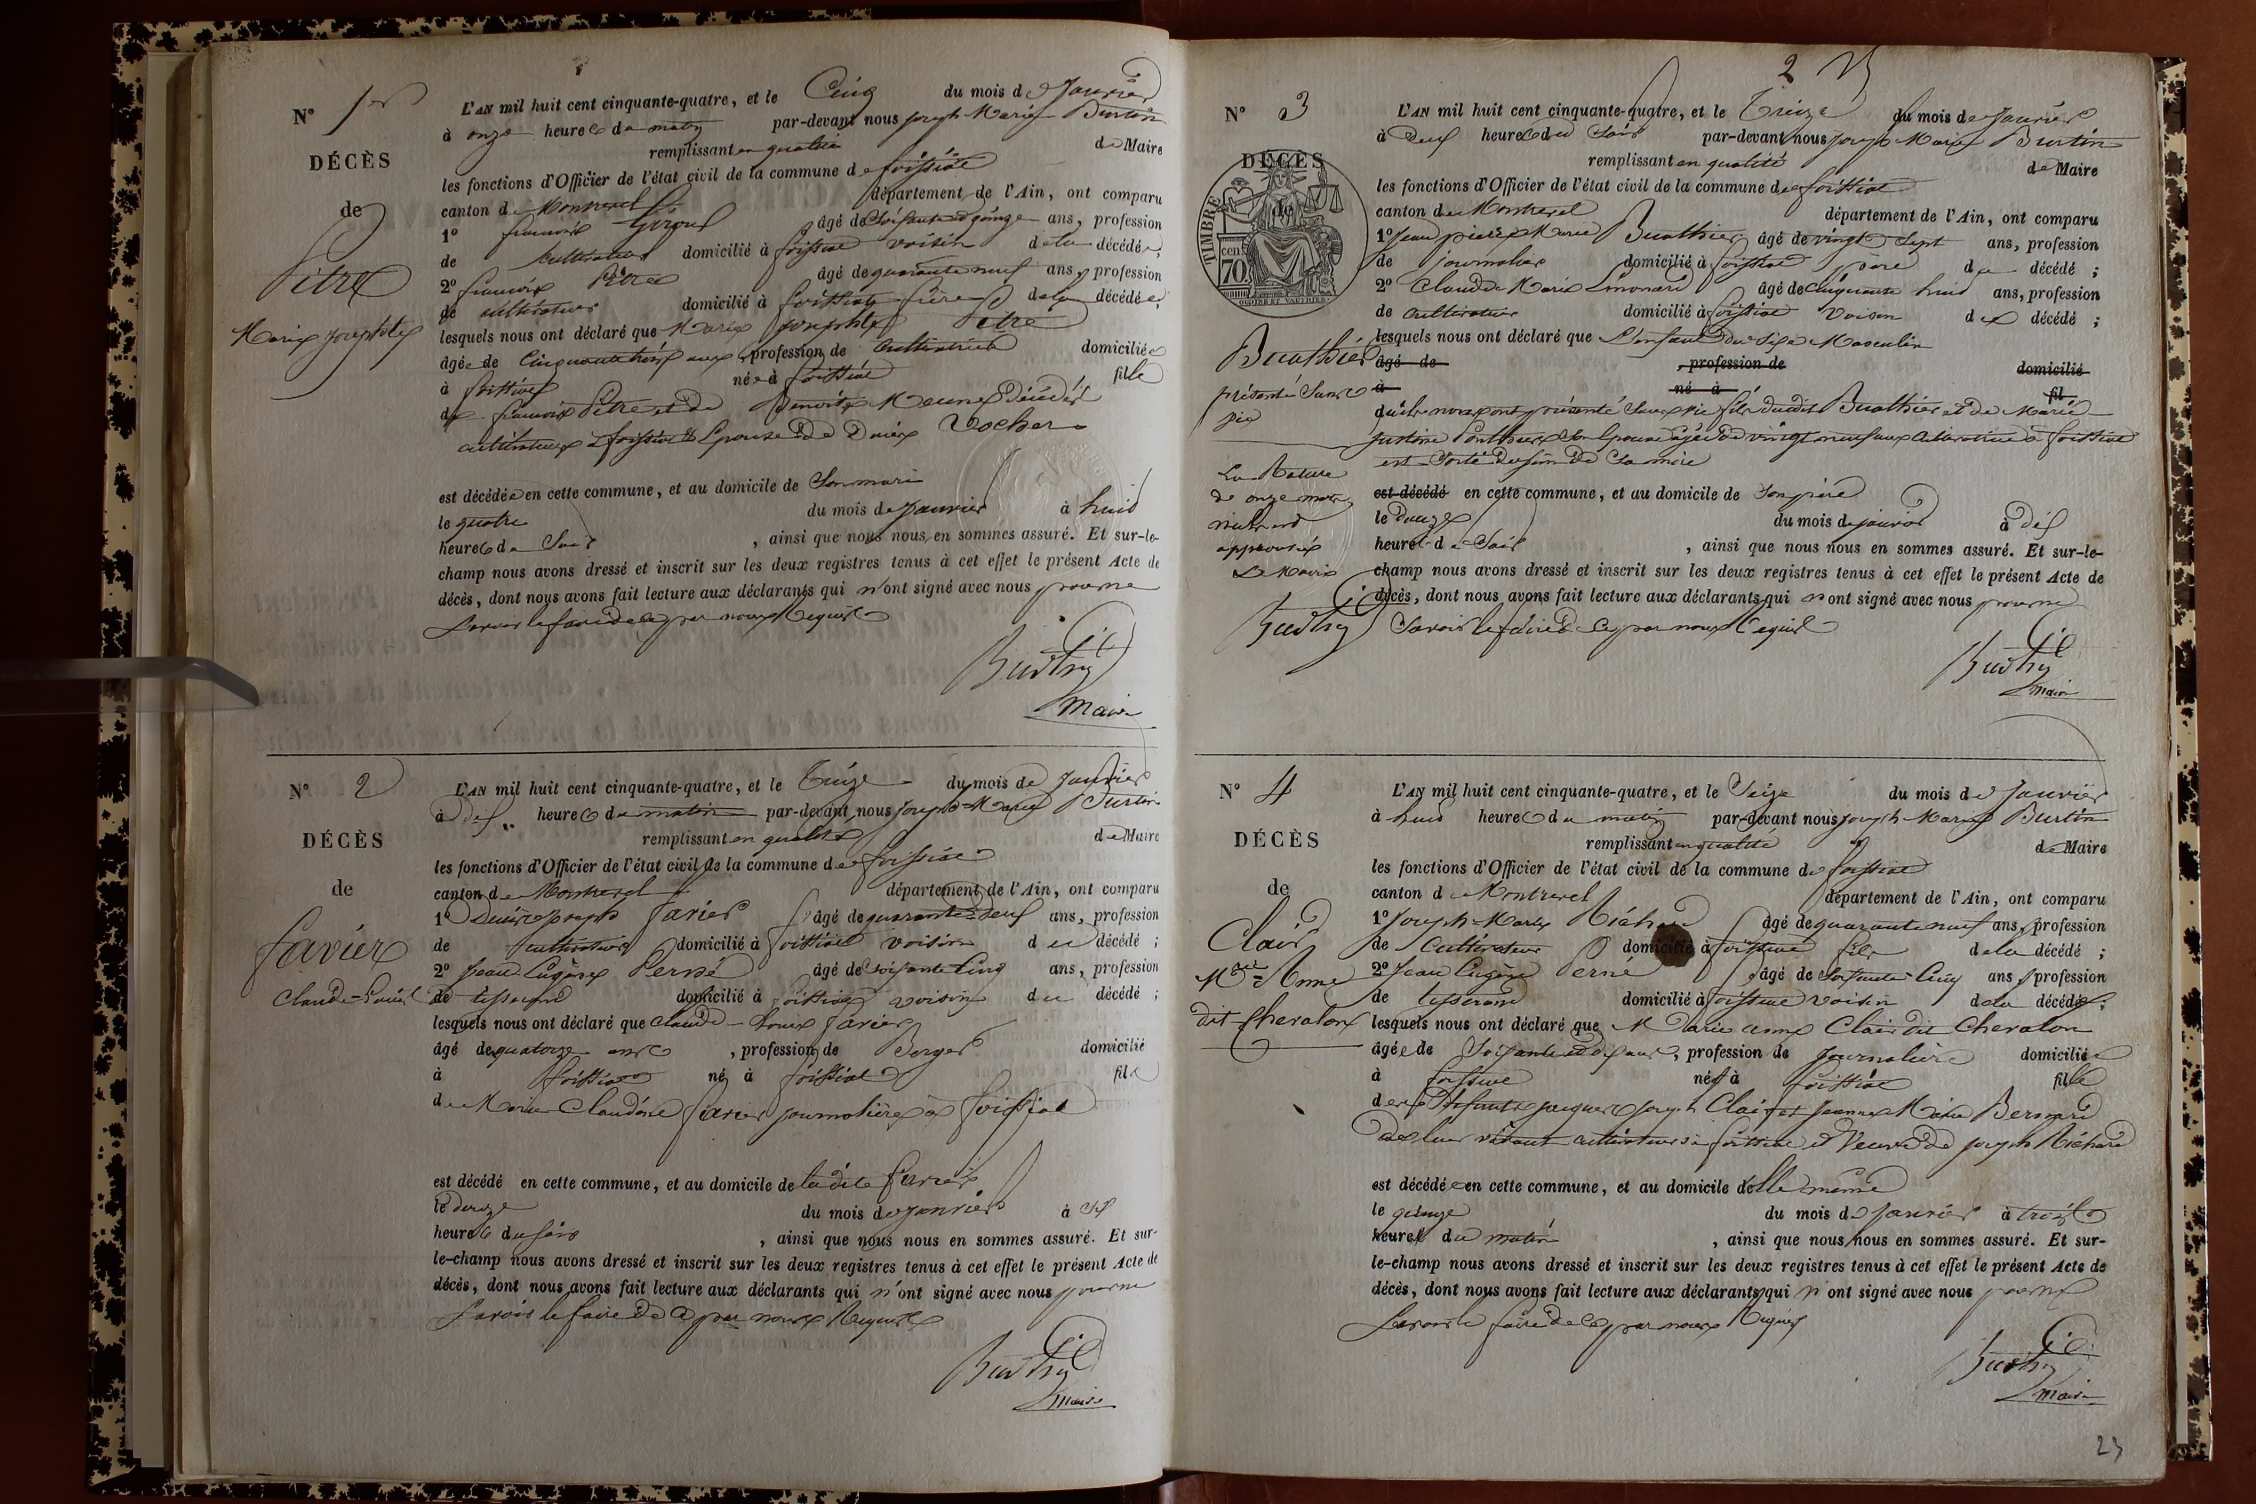 N° 1er
DÉCÈS
de
Pitre
Marie josephte
L'AN mil huit cent cinquante-quatre, et le Cinq du mois de Janvier
à onze heures du matin par-devant nous joseph Marie Burtin
remplissant en qualité de Maire
les fonctions d'Officier de l'état civil de la commune de foissiat
canton de Montrevel département de l'Ain, ont comparu
1° françois âgé de Soisante et quinze ans, profession
de cultivateur domicilié à foissiat voisin de la décédée;
2° françois Pitre âgé de quarante neuf ans, profession
de cultivateur domicilié à foissiat frère de la décédée;
lesquels nous ont déclaré que Marie josephte Pitre
âgée de Cinquante trois ans, profession de Cultivatrice domiciliée
à foissiat née à foissiat fille
de françois Pitre et de décédés
cultivateurs à foissiat et Epouse de Denis Vocher
est décédée en cette commune, et au domicile de Son mari
le quatre du mois de Janvier à huit
heures du Soir, ainsi que nous nous en sommes assuré. Et sur-le-
champ nous avons dressé et inscrit sur les deux registres tenus à cet effet le présent Acte de
décès, dont nous avons fait lecture aux déclarants qui n'ont signé avec nous pour ne
Savoir le faire de ce par nous Requis
Burtin
Maire
N° 2
DÉCÈS
de
favier
Claude-Louis
L'AN mil huit cent cinquante-quatre, et le Treize du mois de Janvier
à dix heures du matin par-devant nous joseph-Marie Burtin
remplissant en qualité de Maire
les fonctions d'Officier de l'état civil de la commune de foissiat
canton de Montrevel département de l'Ain, ont comparu
1° Denis joseph favier âgé de quarante-deux ans, profession
de cultivateur domicilié à foissiat voisin du décédé;
2° Jean Eugène Perné âgé de Soisante Cinq ans, profession
de tisserand domicilié à foissiat voisin du décédé;
lesquels nous ont déclaré que Claude-Louis favier
âgé de quatorze ans, profession de Berger domicilié
à foissiat né à foissiat fils
de Marie Claudine favier journalière à foissiat
est décédé en cette commune, et au domicile de la dite favier
le douze du mois de Janvier à six
heures du soir, ainsi que nous nous en sommes assuré. Et sur-
le-champ nous avons dressé et inscrit sur les deux registres tenus à cet effet le présent Acte de
décès, dont nous avons fait lecture aux déclarants qui n'ont signé avec nous pour ne
Savoir le faire de ce par nous Requis
Burtin
maire
2
N° 3
DÉCÈS
de
TIMBRE
70 cent
Buathier
présenté Sans
vie
La Rature
de onze mots
nuls
approuvée
Le Maire
Burtin
L'AN mil huit cent cinquante-quatre, et le Treize du mois de Janvier
à Deux heures du Soir par-devant nous joseph Marie Burtin
remplissant en qualité de Maire
les fonctions d'Officier de l'état civil de la commune de foissiat
canton de Montrevel département de l'Ain, ont comparu
1° Jean pierre Marie Buathier âgé de vingt Sept ans, profession
de journalier domicilié à foissiat père du décédé;
2° Claude Marie Limonard âgé de Cinquante huit ans, profession
de cultivateur domicilié à foissiat voisin du décédé;
lesquels nous ont déclaré que L'enfant du Sexe Masculin
âgé de, profession de domicilié
à né à fil
qu'ils nous ont présenté Sans vie fils dudit Buathier et de Marie
justine Son Epouse âgée de vingt neuf ans Cultivatrice à foissiat
est Sorti du sein de Sa mère
est décédé en cette commune, et au domicile de Son père
le Douze du mois de janvier à dix
heures du Soir, ainsi que nous nous en sommes assuré. Et sur-le-
champ nous avons dressé et inscrit sur les deux registres tenus à cet effet le présent Acte de
décès, dont nous avons fait lecture aux déclarants qui n'ont signé avec nous pour ne
Savoir le faire de ce par nous Requis
Burtin
maire
N° 4
DÉCÈS
de
Clair
Mrie Anne
dit Cheraton
L'AN mil huit cent cinquante-quatre, et le Seize du mois de Janvier
à huit heures du matin par-devant nous joseph Marie Burtin
remplissant en qualité de Maire
les fonctions d'Officier de l'état civil de la commune de foissiat
canton de Montrevel département de l'Ain, ont comparu
1° joseph-Marie Richard âgé de quarante neuf ans, profession
de Cultivateur domicilié à foissiat fils de la décédé;
2° Jean Eugène Perné âgé de Soisante Cinq ans, profession
de tisserand domicilié à foissiat voisin de la décédée;
lesquels nous ont déclaré que Marie anne Clair dit Cheraton
âgée de Soisante et dix ans, profession de journalière domiciliée
à foissiat née à foissiat fille
des défunts jacques joseph Clair et jeanne Marie Bernard
de leur vivant cultivateurs à foissiat et Veuve de joseph Richard
est décédée en cette commune, et au domicile d'elle même
le quinze du mois de janvier à trois
heures du matin, ainsi que nous nous en sommes assuré. Et sur-
le-champ nous avons dressé et inscrit sur les deux registres tenus à cet effet le présent Acte de
décès, dont nous avons fait lecture aux déclarants qui n'ont signé avec nous pour ne
Savoir le faire de ce par nous Requis
Burtin
maire
23